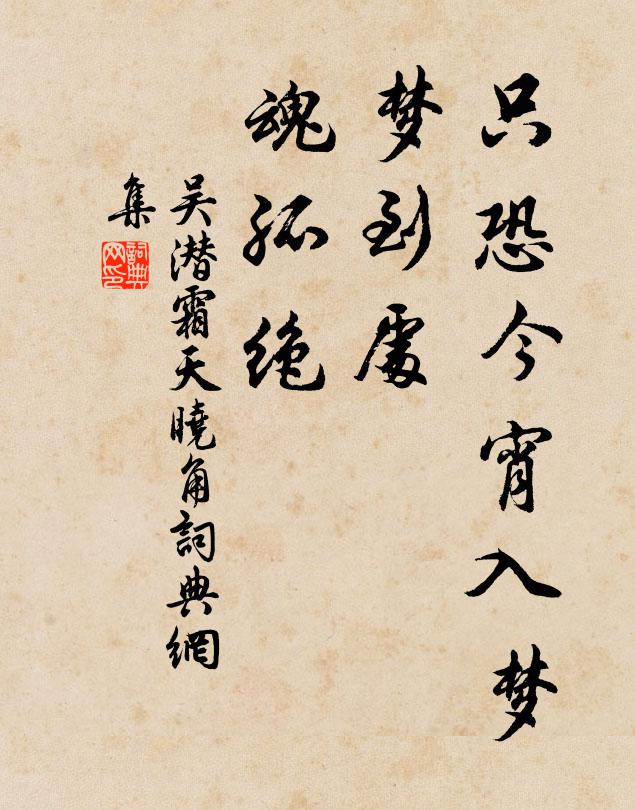 只恐今宵入梦
梦到處
魂孤绝
吴潜霜天曉角詞典網
集
詞典
网印